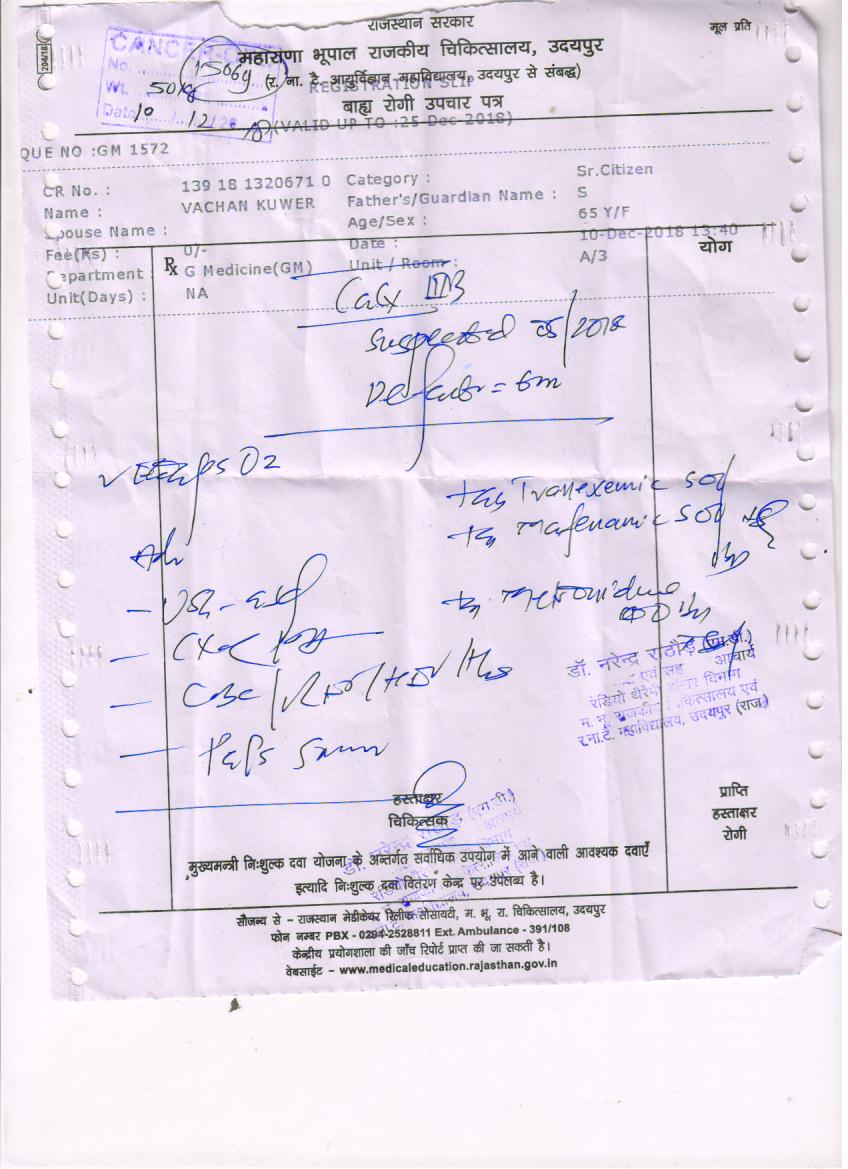 राजस्थान सरकार
मूल प्रति
204/18
महाराणा भूपाल राजकीय चिकित्सालय, उदयपुर
CANCER
No. 15069
(र. ना. टै. आयुर्विज्ञान महाविद्यालय, उदयपुर से संबद्ध)
REGISTRATION SLIP
Wt. 50 kg
बाह्य रोगी उपचार पत्र
Date 10/12/20
(VALID UP TO :25-Dec-2018)
QUE NO :GM 1572
CR No. : 139 18 1320671 0 Category : Sr.Citizen
Name : VACHAN KUWER Father's/Guardian Name : S
Spouse Name : Age/Sex : 65 Y/F
Fee(Rs) : 0/- Date : 10-Dec-2018 13:40
योग
Department : G Medicine(GM) Unit / Room : A/3
Rx
Unit(Days) : NA
CaCx IIIB
Suspected 05/2018
Defaulter = 6m
tab Tranexemic 500
tab Mafenamic 500
Adv
tab Metronidazole
CBC/RFT/HIV/Hbs
डॉ. नरेन्द्र राठौड़ (एम.डी.)
एवं सह आचार्य
रेडियो थैरेपी कैंसर विभाग
म. भू. राजकीय चिकित्सालय एवं
र.ना.टै. महाविद्यालय, उदयपुर (राज.)
हस्ताक्षर
चिकित्सक
प्राप्ति
हस्ताक्षर
रोगी
मुख्यमन्त्री निःशुल्क दवा योजना के अन्तर्गत सर्वाधिक उपयोग में आने वाली आवश्यक दवाएँ
इत्यादि निःशुल्क दवा वितरण केन्द्र पर उपलब्ध है।
सौजन्य से – राजस्थान मेडीकेयर रिलीफ सोसायटी, म. भू. रा. चिकित्सालय, उदयपुर
फोन नम्बर PBX - 0294-2528811 Ext. Ambulance - 391/108
केन्द्रीय प्रयोगशाला की जाँच रिपोर्ट प्राप्त की जा सकती है।
वेबसाईट – www.medicaleducation.rajasthan.gov.in